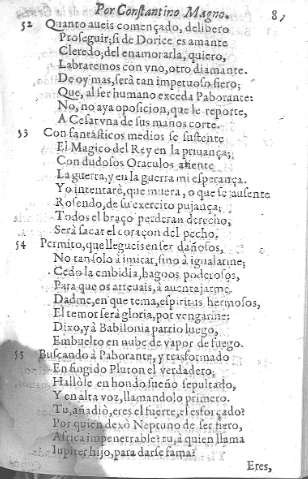 Por Constantino Magno. 87
52 Quanto aueis començado, delibero
Proseguir; si de Dorice es amante
Cleredo; del enamorarla, quiero,
Labraremos con vno, otro diamante.
De oy mas, serà tan impetuoso fiero;
Que, al ser humano exceda Paborante:
No, no aya oposicion, que le reporte,
A Cesar vna de sus manos corte.
53 Con fantasticos medios se sustente
El Magico del Rey en la priuança;
Con dudosos Oraculos
La guerra, y en la guerra mi esperança.
Yo intentarè, que muera, o que se ausente
Rosendo, de su exercito pujança;
Todos el braço perderan derecho,
Serà sacar el coraçon del pecho.
54 Permito, que llegueis en ser dañosos,
No tan solo à imitar, sino à igualarme;
Cedo la embidia, bagoos poderosos,
Para que os atreuais, à auentajarme.
Dadme, en que tema, espiritus hermosos,
El temor serà gloria, por vengarme:
Dixo, y à Babilonia partio luego,
Embuelto en nube de vapor de fuego.
55 Buscando à Paborante, y trasformado
En fingido Pluton el verdadero;
Hallòle en hondo sueño sepultado,
Y en alta voz, llamandolo primero.
Tu, añadiò, eres el fuerte, el esforçado?
Por quien dexò Neptuno de ser fiero,
Africa impenetrable? tu, à quien llama
Iupiter hijo, para darse fama?
Eres,